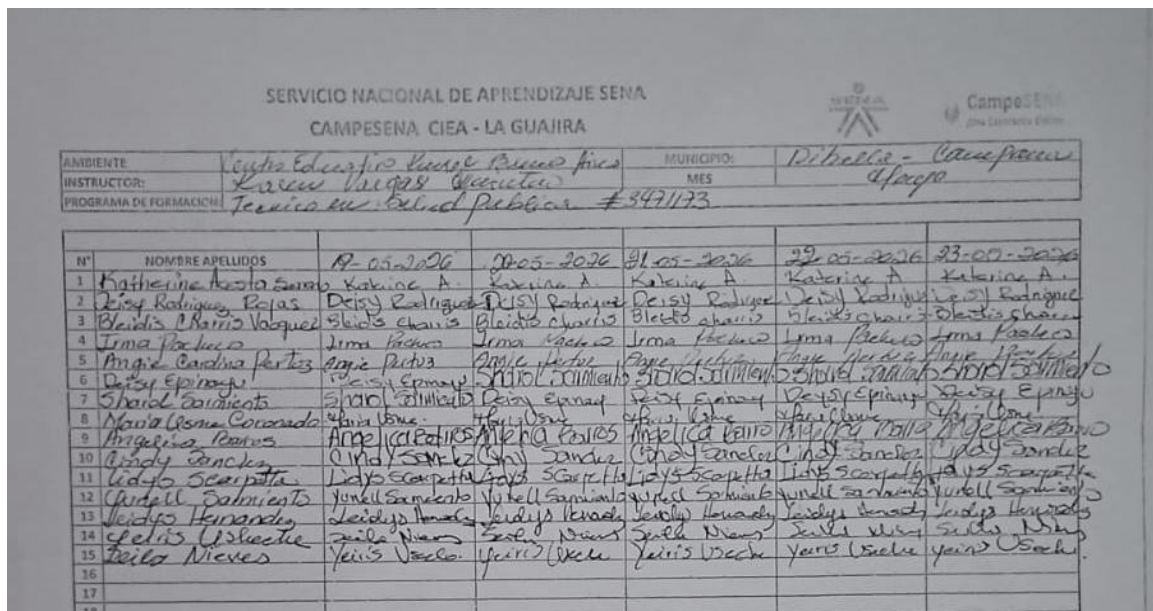 SERVICIO NACIONAL DE APRENDIZAJE SENA
CAMPESENA CIEA - LA GUAJIRA
CampeSENA
AMBIENTE Centro Educativo Rural Buenos Aires MUNICIPIO: Dibulla - Campana
INSTRUCTOR: Karen Vargas MES Mayo
PROGRAMA DE FORMACION: Tecnico en Salud Publica #3471173
N° NOMBRE APELLIDOS 19-05-2026 20-05-2026 21-05-2026 22-05-2026 23-05-2026
1 Katherine Acosta Katerine A. Katerine A. Katerine A. Katerine A. Katerine A.
2 Deisy Rodriguez Rojas Deisy Rodriguez Deisy Rodriguez Deisy Rodriguez Deisy Rodriguez Deisy Rodriguez
3 Bleidis Charris Vasquez Bleidis charris Bleidis charris Bleidis charris Bleidis charris Bleidis charris
4 Irma Pacheco Irma Pacheco Irma Pacheco Irma Pacheco Irma Pacheco Irma Pacheco
5 Angie Carolina Pertuz Angie Pertuz Angie Pertuz Angie Angie Angie
6 Deisy Epinayu Deisy Epinayu Sharol Sarmiento Sharol Sarmiento Sharol Sarmiento Sharol Sarmiento
7 Sharol Sarmiento Sharol Sarmiento Deisy Epinay Deisy Epinay Deysy Epinayu Deisy Epinayu
8 Maria Osme Coronado Maria Osme Maria Osme Maria Osme Maria Osme Maria Osme
9 Angelica Barros Angelica Barros Angelica Barros Angelica Barro Angelica Angelica Barro
10 Cindy Sanchez Cindy Sanchez Cindy Sandez Cindy Sanchez Cindy Sanchez Cindy Sandez
11 Lidys Scarpetta Lidys Scarpetta Lidys Scarpetta Lidys Scarpetta Lidys Scarpetta Lidys Scarpetta
12 Yudell Sarmiento Yunell Sarmiento Yunell Sarmiento Yunell Sarmiento Yunell Sarmiento Yunell Sarmiento
13 Leidys Hernandez Leidys Leidys Leidys Leidys Leidys
14 Yeiris Useche Seila Nieves Seila Seila Seila Seila
15 Seila Nieves Yeiris Useche Yeiris Useche Yeiris Useche Yeiris Useche Yeiris Useche
16
17